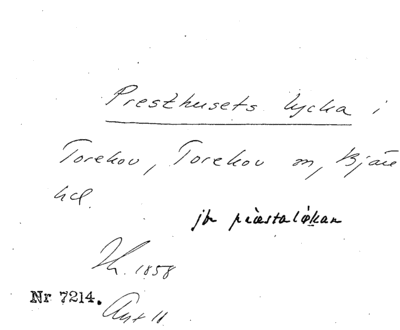 Presthusets lycka i
Torekov, Torekov sn, Bjäre
hd.
jfr prästalökan
1858
Nr 7214.